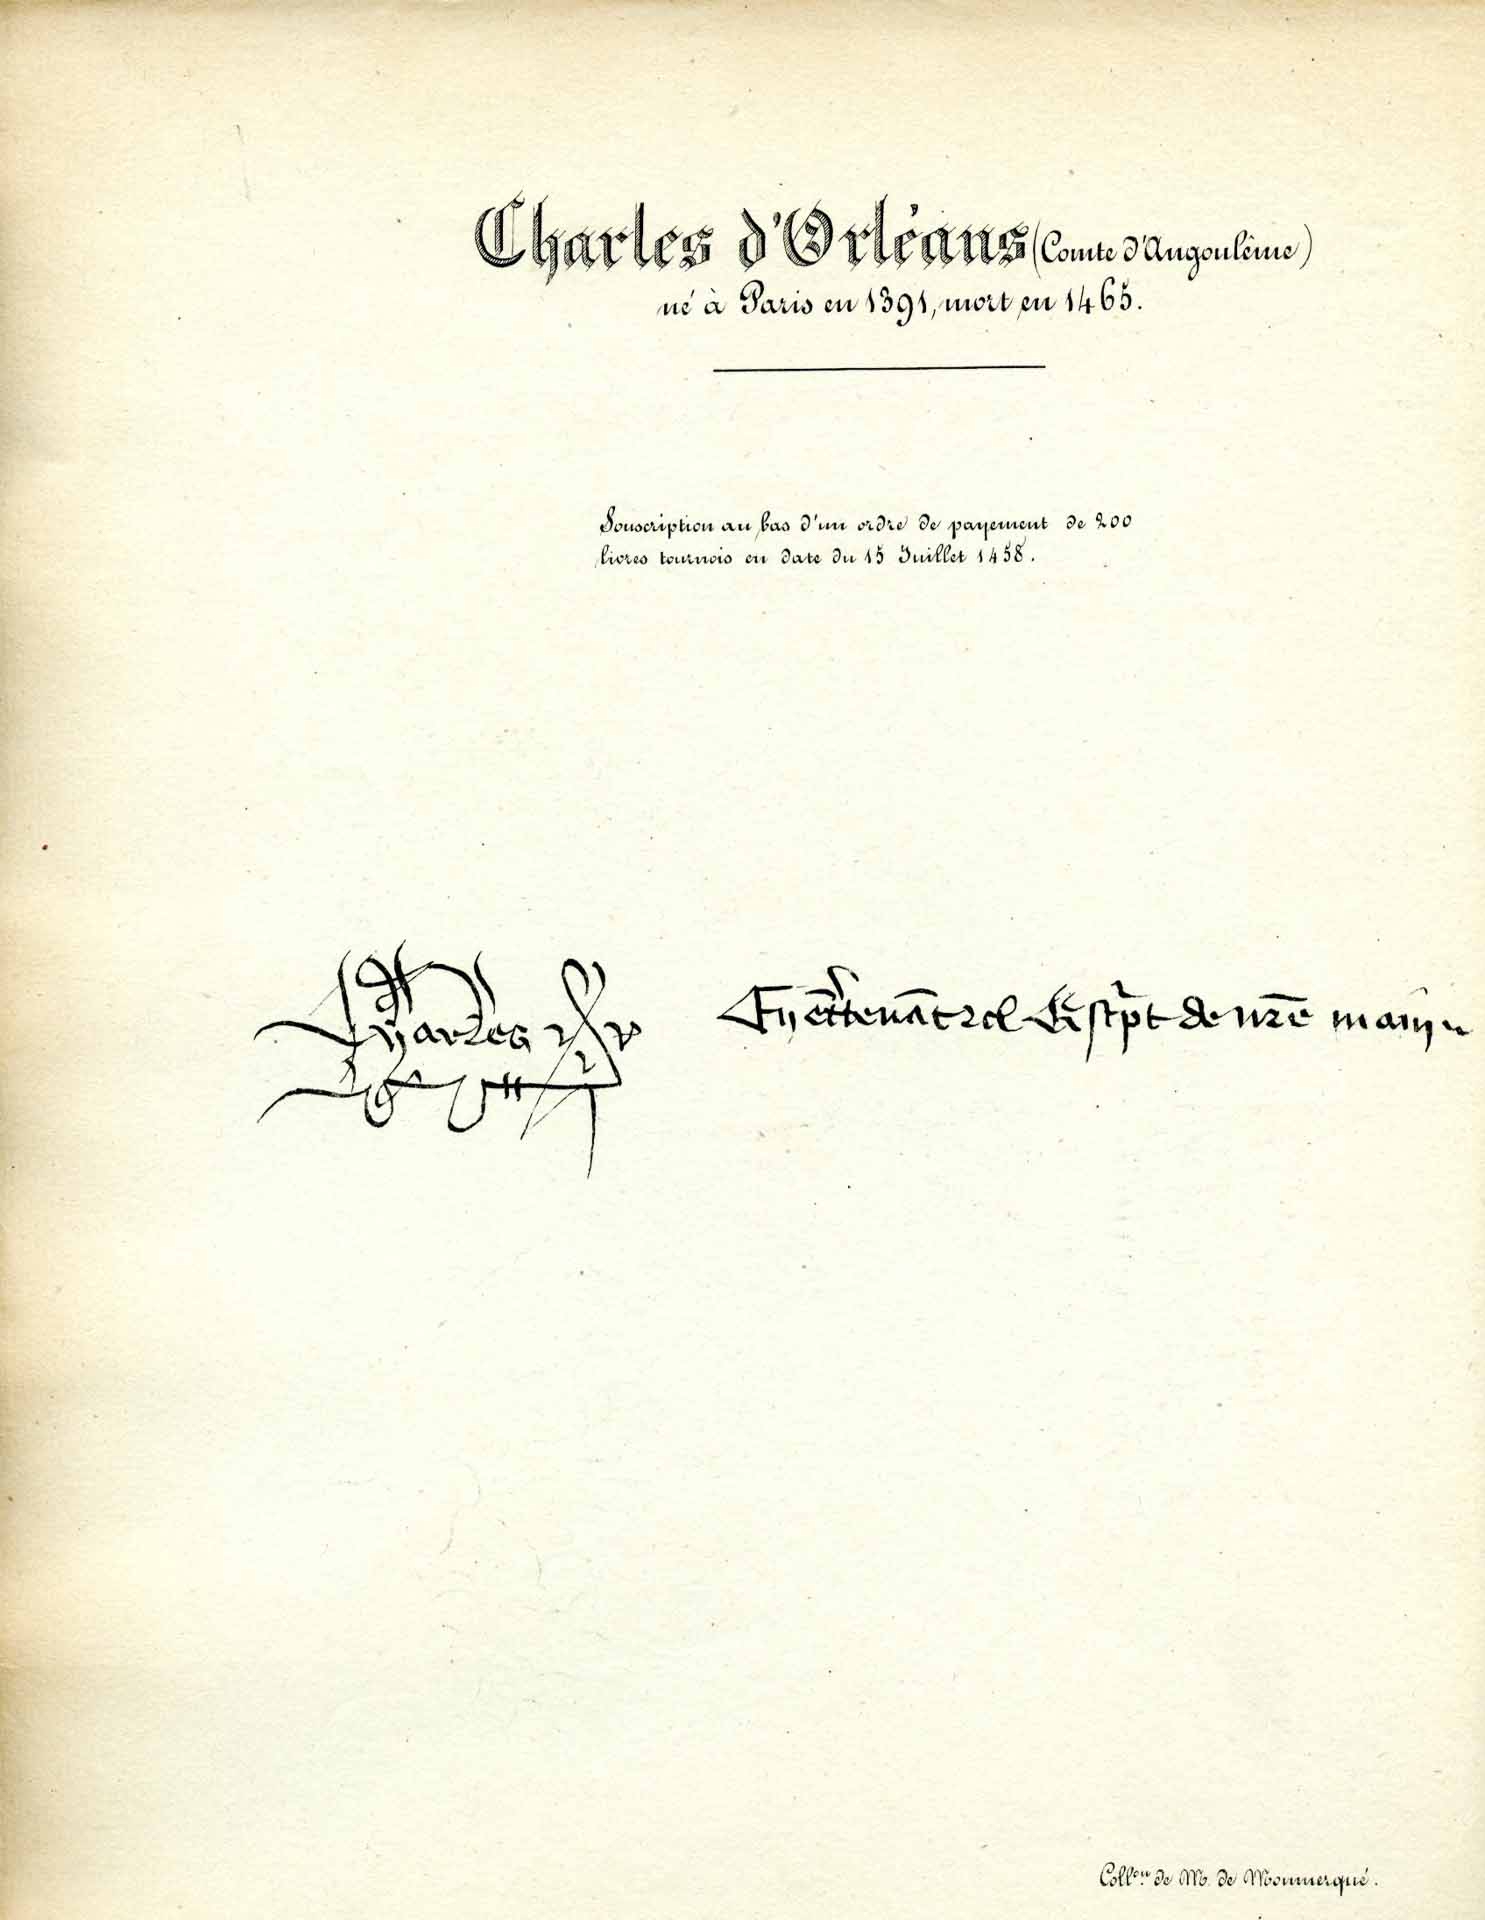 Charles d'Orléans (Comte d'Angoulême)
né à Paris en 1391, mort en 1465.
Souscription au bas d'un ordre de payement de 200
livres tournois en date du 15 Juillet 1458.
Charles
de nr̄e main
Coll.on de M. de Monmerqué.